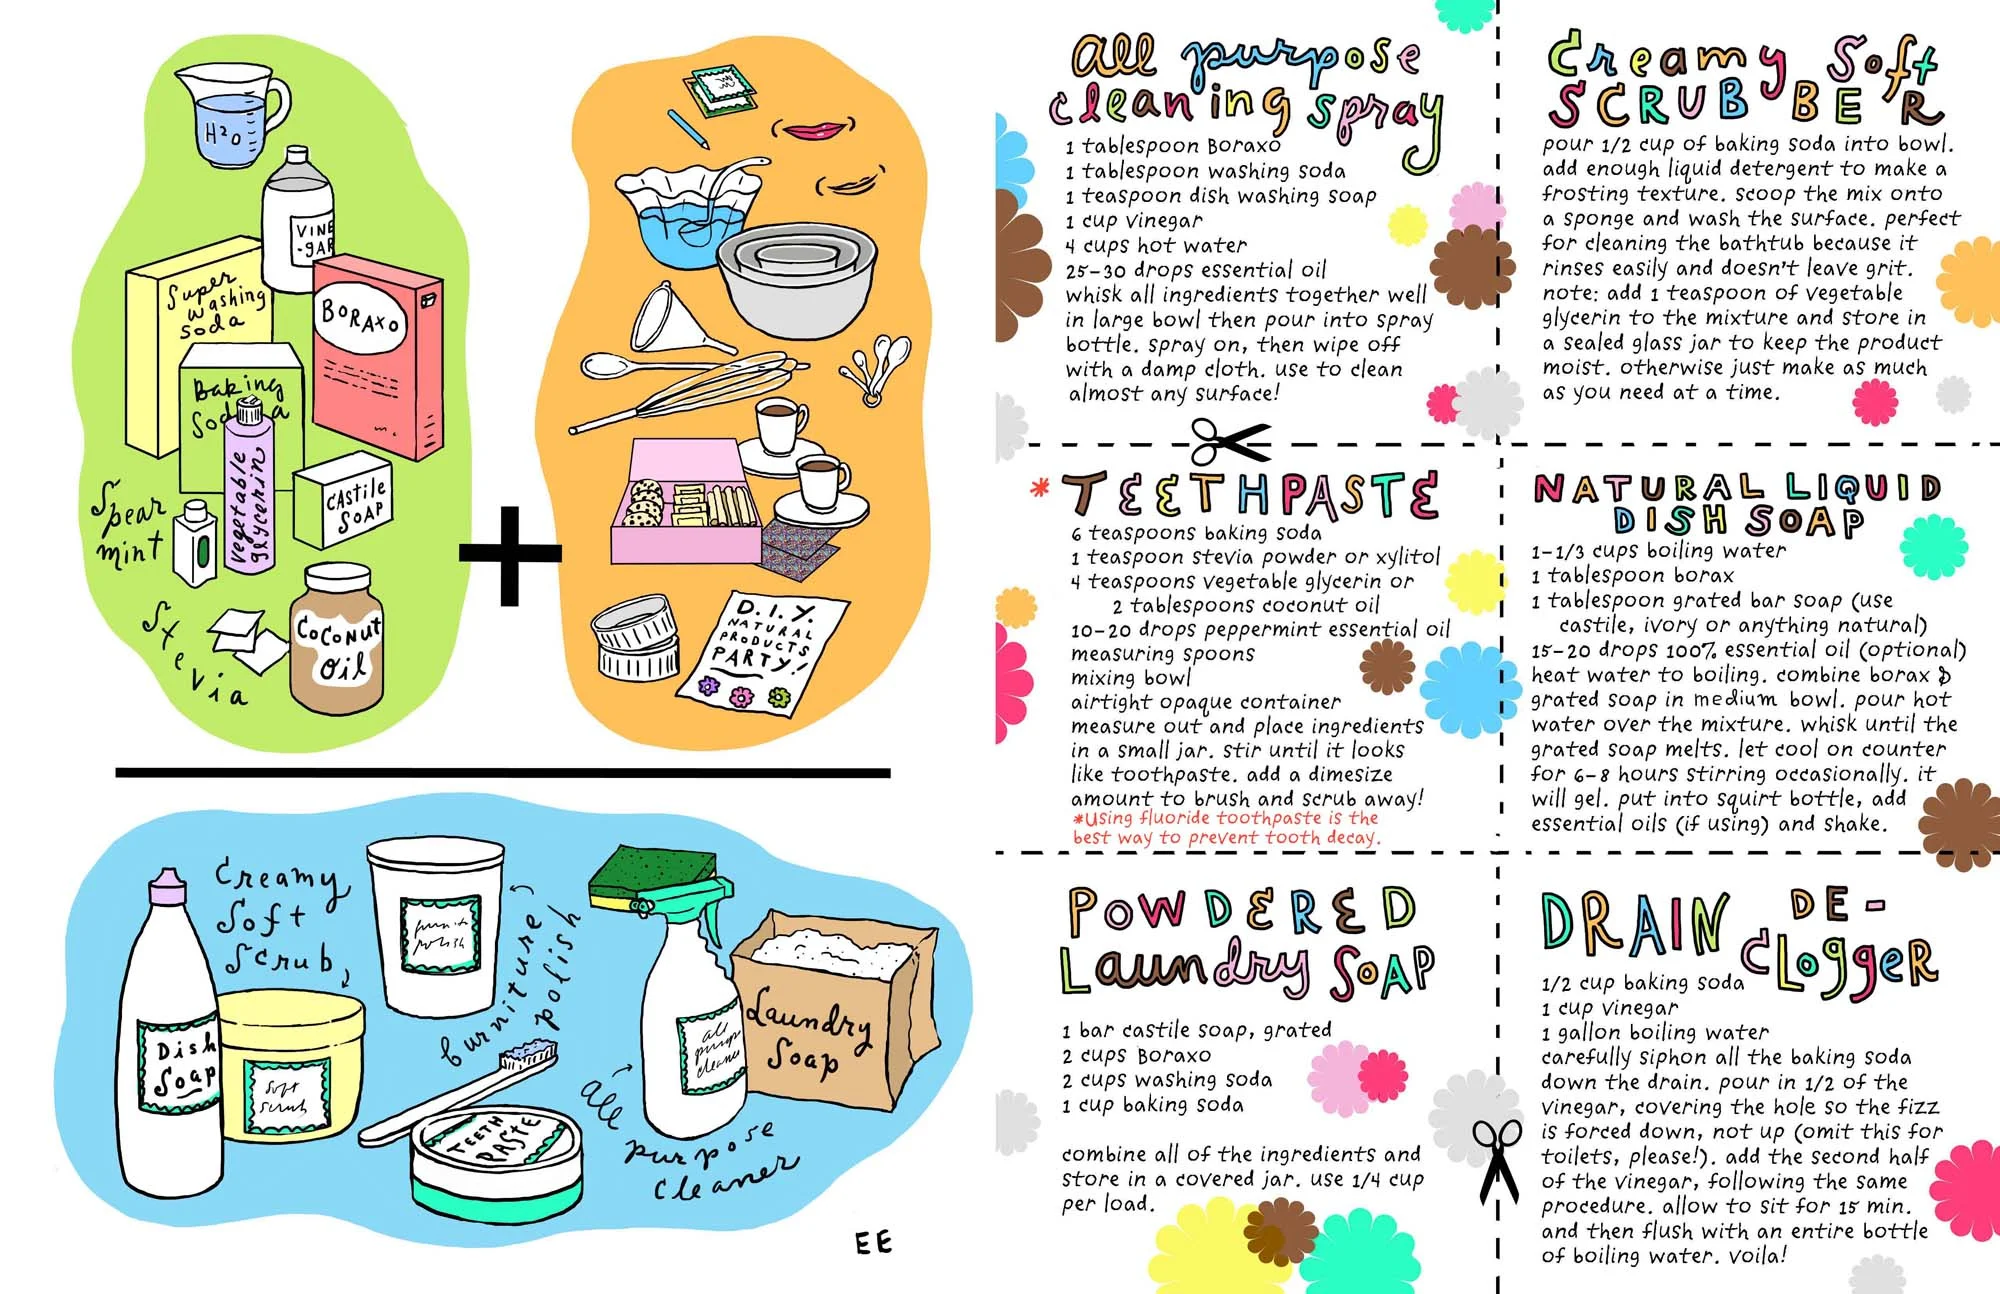 H2O
VINE
-gAR
Super
washing
soda
BORAXO
Baking
Soda
vegetable
glycerin
CAStile
SOAP
Spear
mint
Stevia
COCONUT
Oil
D.I.Y.
NATURAL
PRODUCTS
PARTY!
Creamy
Soft
Scrub
furniture
polish
Dish
Soap
Soft
Scrub
TEETH
PASTE
all
purpose
cleaner
Laundry
Soap
All
purpose
cleaner
EE
All purpose
cleaning spray
1 tablespoon Boraxo
1 tablespoon washing soda
1 teaspoon dish washing soap
1 cup vinegar
4 cups hot water
25-30 drops essential oil
whisk all ingredients together well
in large bowl then pour into spray
bottle. spray on, then wipe off
with a damp cloth. use to clean
almost any surface!
Creamy Soft
SCRUBBER
pour 1/2 cup of baking soda into bowl.
add enough liquid detergent to make a
frosting texture. scoop the mix onto
a sponge and wash the surface. perfect
for cleaning the bathtub because it
rinses easily and doesn't leave grit.
note: add 1 teaspoon of vegetable
glycerin to the mixture and store in
a sealed glass jar to keep the product
moist. otherwise just make as much
as you need at a time.
*TEETHPASTE
6 teaspoons baking soda
1 teaspoon stevia powder or xylitol
4 teaspoons vegetable glycerin or
2 tablespoons coconut oil
10-20 drops peppermint essential oil
measuring spoons
mixing bowl
airtight opaque container
measure out and place ingredients
in a small jar. stir until it looks
like toothpaste. add a dimesize
amount to brush and scrub away!
*Using fluoride toothpaste is the
best way to prevent tooth decay.
NATURAL LIQUID
DISH SOAP
1-1/3 cups boiling water
1 tablespoon borax
1 tablespoon grated bar soap (use
castile, ivory or anything natural)
15-20 drops 100% essential oil (optional)
heat water to boiling. combine borax &
grated soap in medium bowl. pour hot
water over the mixture. whisk until the
grated soap melts. let cool on counter
for 6-8 hours stirring occasionally. it
will gel. put into squirt bottle, add
essential oils (if using) and shake.
POWDERED
Laundry SOAP
1 bar castile soap, grated
2 cups Boraxo
2 cups washing soda
1 cup baking soda
combine all of the ingredients and
store in a covered jar. use 1/4 cup
per load.
DRAIN DE-
CloggeR
1/2 cup baking soda
1 cup vinegar
1 gallon boiling water
carefully siphon all the baking soda
down the drain. pour in 1/2 of the
vinegar, covering the hole so the fizz
is forced down, not up (omit this for
toilets, please!). add the second half
of the vinegar, following the same
procedure. allow to sit for 15 min.
and then flush with an entire bottle
of boiling water. voila!